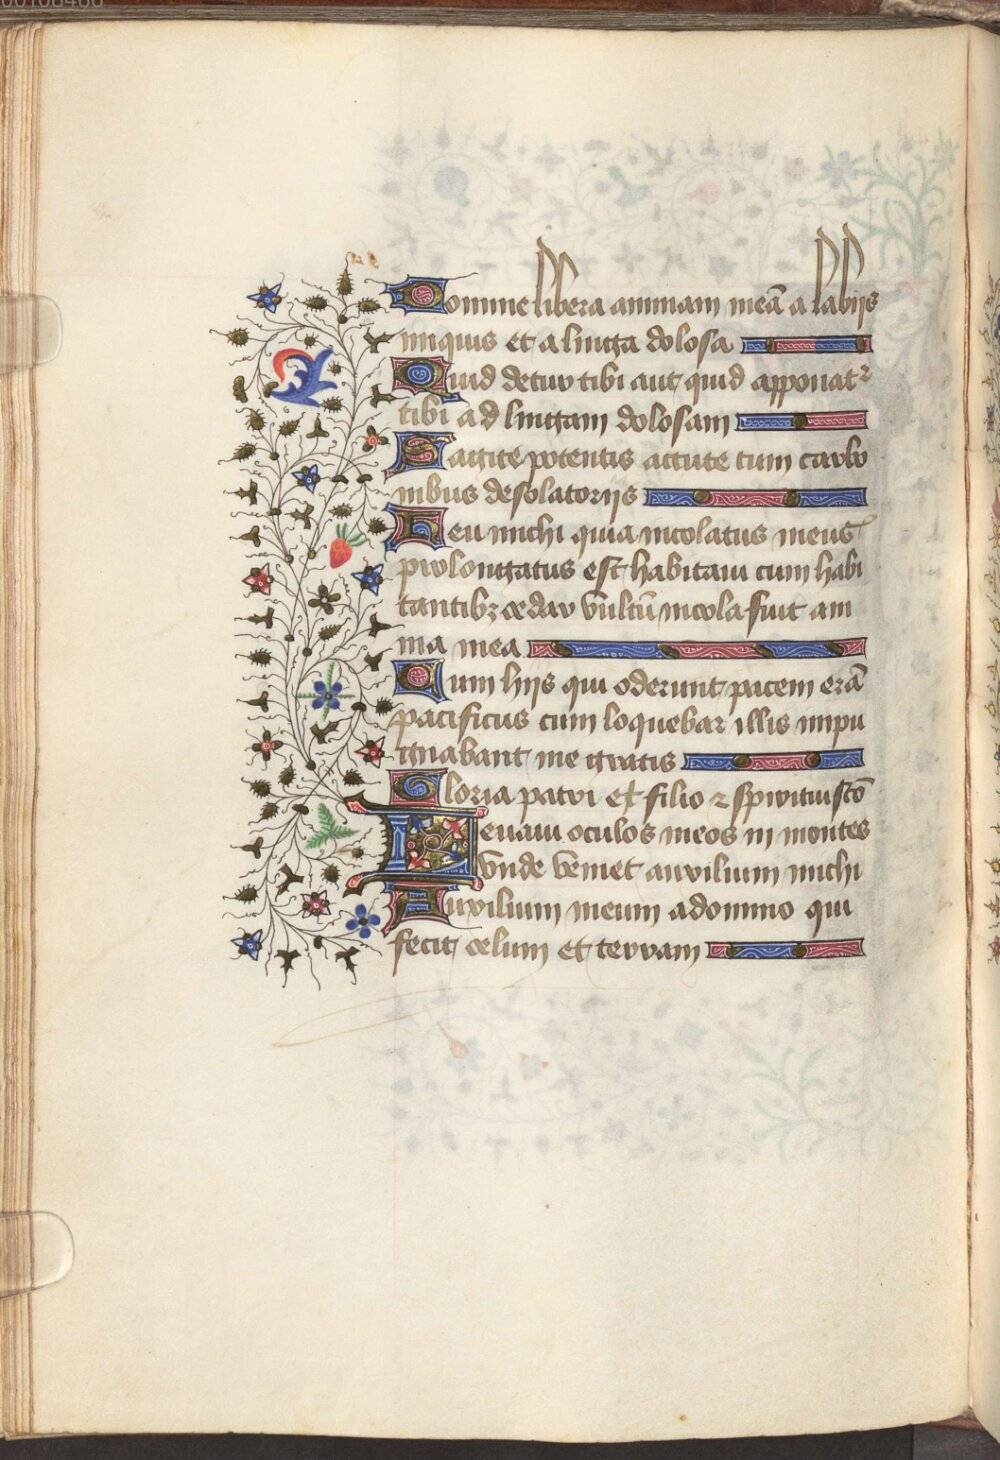 Domine libera animam meā a labijs
iniquis et a lingа dolosa
Quid detur tibi aut quid apponatꝛ
tibi ad lingam dolosam
Sagite potentis accute cum carbo
nibus desolatorijs
Heu michi quia incolatus meus
prolongatus est habitaui cum habi
tantibꝫ cedar vultū incola fuit ani
ma mea
Cum hijs qui oderunt pacem erā
pacificus cum loquebar illis impu
gnabant me gratis
Gloria patri et filio ⁊ spiritui scō
Leuaui oculos meos in montes
vnde veniet auxilium michi
Auxilium meum a domino qui
fecit celum et terram